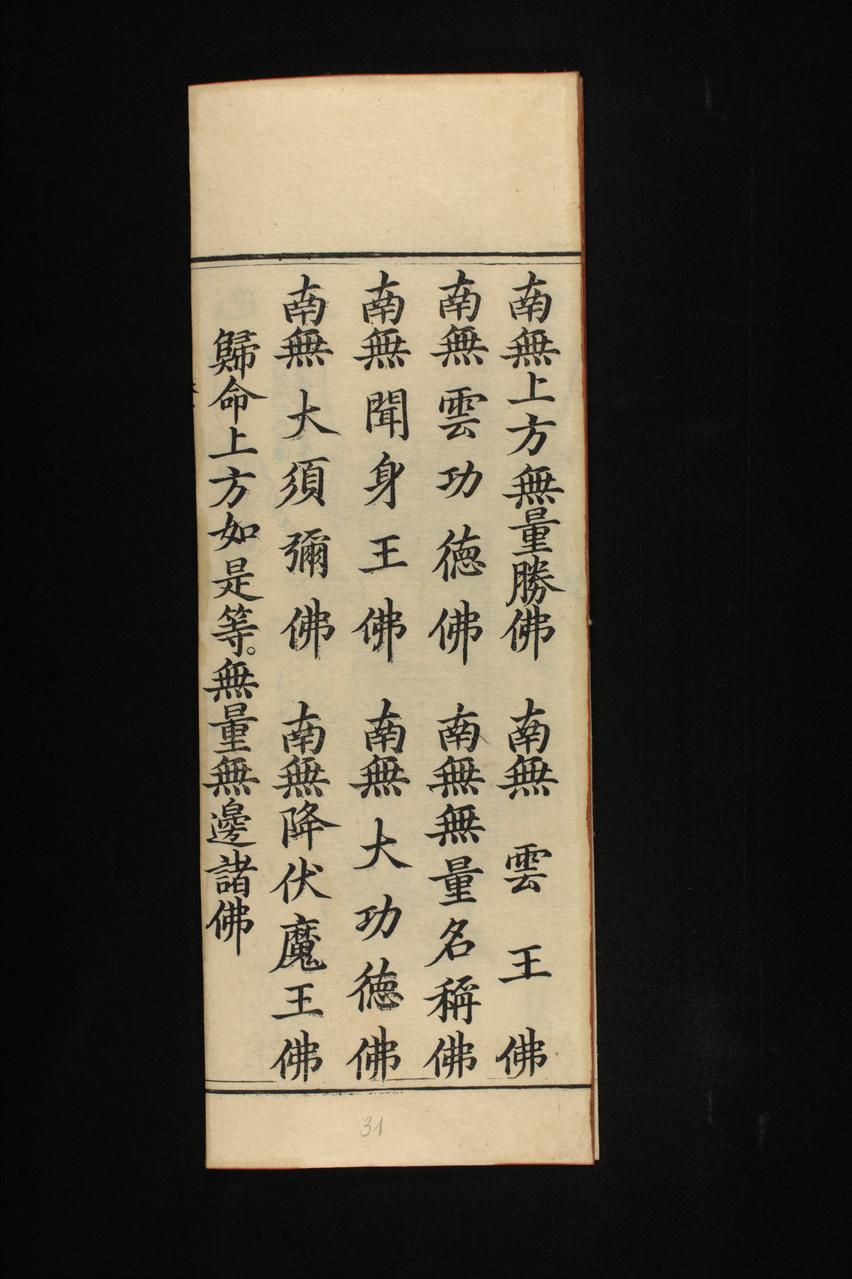 南無上方無量勝佛　南無雲王佛
南無雲功德佛　南無無量名稱佛
南無聞身王佛　南無大功德佛
南無大須彌佛　南無降伏魔王佛
歸命上方如是等。無量無邊諸佛
31